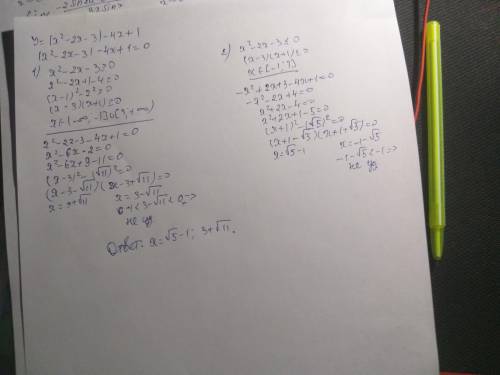 y=|x²-2x-3|-4x+1
|x²-2x-3|-4x+1=0
1) x²-2x-3≥0
x²-2x+1-4≥0
(x-1)²-2²≥0
(x-3)(x+1)≥0
x∈(-∞,-1]∪[3,+∞)
x²-2x-3-4x+1=0
x²-6x-2=0
x²-6x+9-11=0
(x-3)²-(√11)²=0
(x-3-√11)(x-3+√11)=0
x=3+√11 x=3-√11
-1<3-√11<0 =>
не уд
2) x²-2x-3≤0
(x-3)(x+1)≤0
x∈[-1;3]
-x²+2x+3-4x+1=0
-x²-2x+4=0
x²+2x-4=0
x²+2x+1-5=0
(x+1)²-(√5)²=0
(x+1-√5)(x+1+√5)=0
x=√5-1 x=-1-√5
-1-√5<-1 =>
не уд
Ответ: x=√5-1; 3+√11.